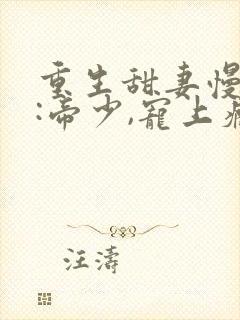 重生甜妻慢
:帝少,寵上
汪濤